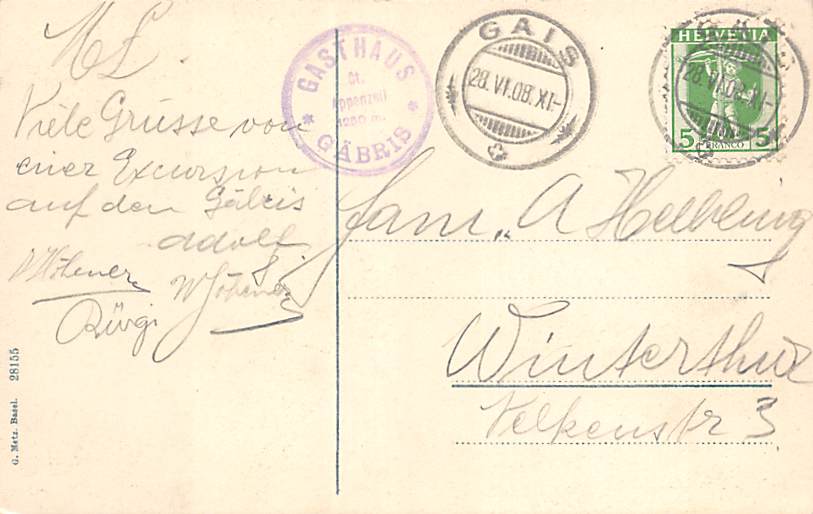 M L.
Viele Grüsse von
einer Excursion
auf den Gäbris
Adolf
Bürgi
G. Metz. Basel. 28155
GASTHAUS
Ct.
Appenzell
1250 m.
GÄBRIS
GAIS
28.VI.08.XI-
HELVETIA
5 FRANCO 5
GAIS
28.VI.08.XI-
Fam. A Helbling
Winterthur
Nelkenstr 3